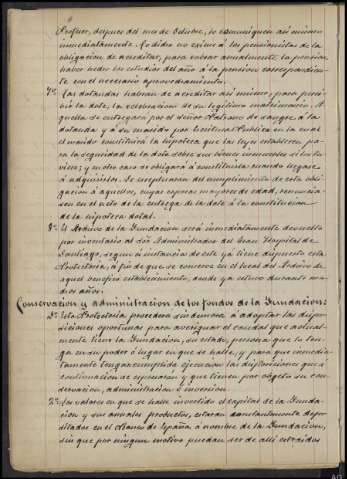 Profsor, despues del mes de Octubre, se comuniquen asi mismo
inmediatamente. No dido se exime á los pensionistas de la
obligacion de acreditar, para cobrar anualmente la pension,
haber hecho los estudios del año á la pension correspondien-
te con el necesario aprovechamiento.
7ª Las dotandas habran de acreditar asi mismo, para perci-
bir la dote, la celebracion de su legítimo matrimonio. A
quella se entregara por el Señor Patrono de sangre á la
dotanda y á su marido por Escritura Publica en la cual
el marido constituirá la hipoteca que las leyes establecen pa-
ra la seguridad de la dote sobre sus bienes inmuebles si los tu-
viese; y en otro caso se obligará á constituirla cuando llegase
á adquirirlos. Se exceptuarán del cumplimiento de esta obli-
gacion á aquellos, cuyas esposas mayores de edad, renuncia-
sen en el acto de la entrega de la dote á la constitucion
de la hipoteca dotal.
8ª El Archivo de la Fundacion será inmediatamente devuelto
por inventario al Sr. Administrador del Gran Hospital de
Santiago, segun á instancia de este ya tiene dispuesto esta
Protectoria, á fin de que se conserve en el local del Archivo de
aquel benéfico establecimiento, donde ya estuvo durante mu-
chos años.
Conservacion y administracion de los fondos de la Fundacion:
1ª Esta Protectoria procederá sin demora á adoptar las dispo-
siciones oportunas para averiguar el caudal que actual-
mente tiene la Fundacion, su estado, persona que lo ten-
ga en su poder ó lugar en que se halle, y para que inmedia-
tamente tengan cumplida ejecucion las disposiciones que á
continuacion se expresarán y que tienen por objeto su con-
servacion, administracion é inversion.
2ª Los valores en que se halle invertido el capital de la Funda-
cion y sus anuales productos, estaran constantemente depo-
sitados en el Banco de España á nombre de la Fundacion,
sin que por ningun motivo puedan ser de allí extraidos